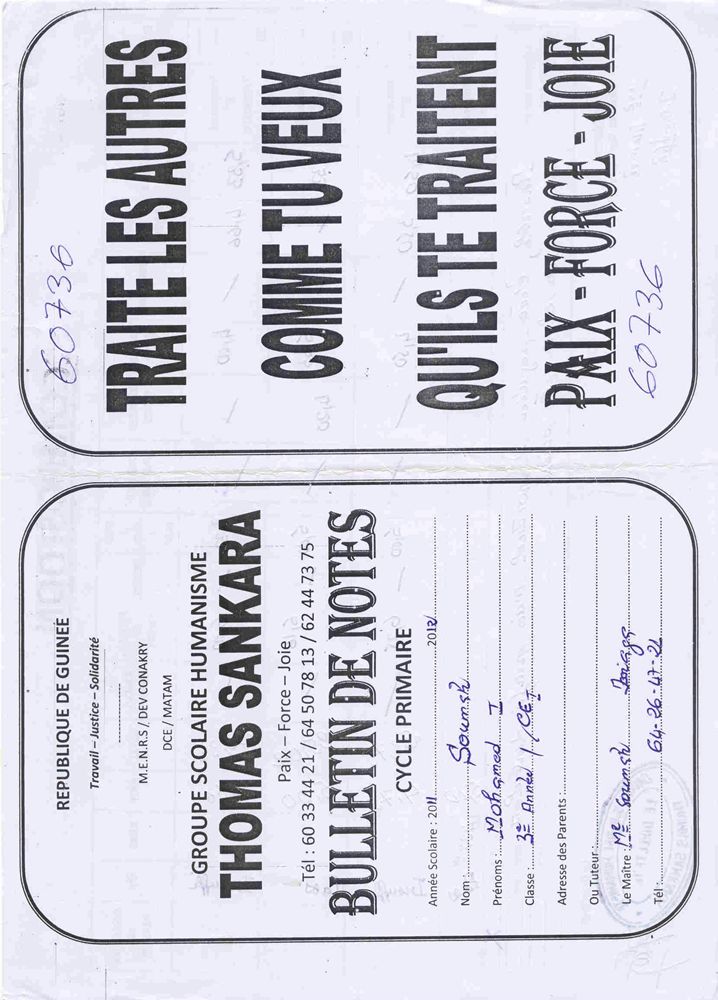 REPUBLIQUE DE GUINEE
Travail – Justice – Solidarité
M.E.N.R.S / DEV CONAKRY
DCE / MATAM
GROUPE SCOLAIRE HUMANISME
THOMAS SANKARA
Paix – Force – Joie
Tél : 60 33 44 21 / 64 50 78 13 / 62 44 73 75
BULLETIN DE NOTES
CYCLE PRIMAIRE
Année Scolaire : 2011 2012
Nom : Soumah
Prénoms : Mohamed I
Classe : 3e Année / CE I
Adresse des Parents :
Ou Tuteur :
Le Maître : Me Soumah
Tél : 64-26-47-21
60736
TRAITE LES AUTRES
COMME TU VEUX
QU'ILS TE TRAITENT
PAIX - FORCE - JOIE
60736